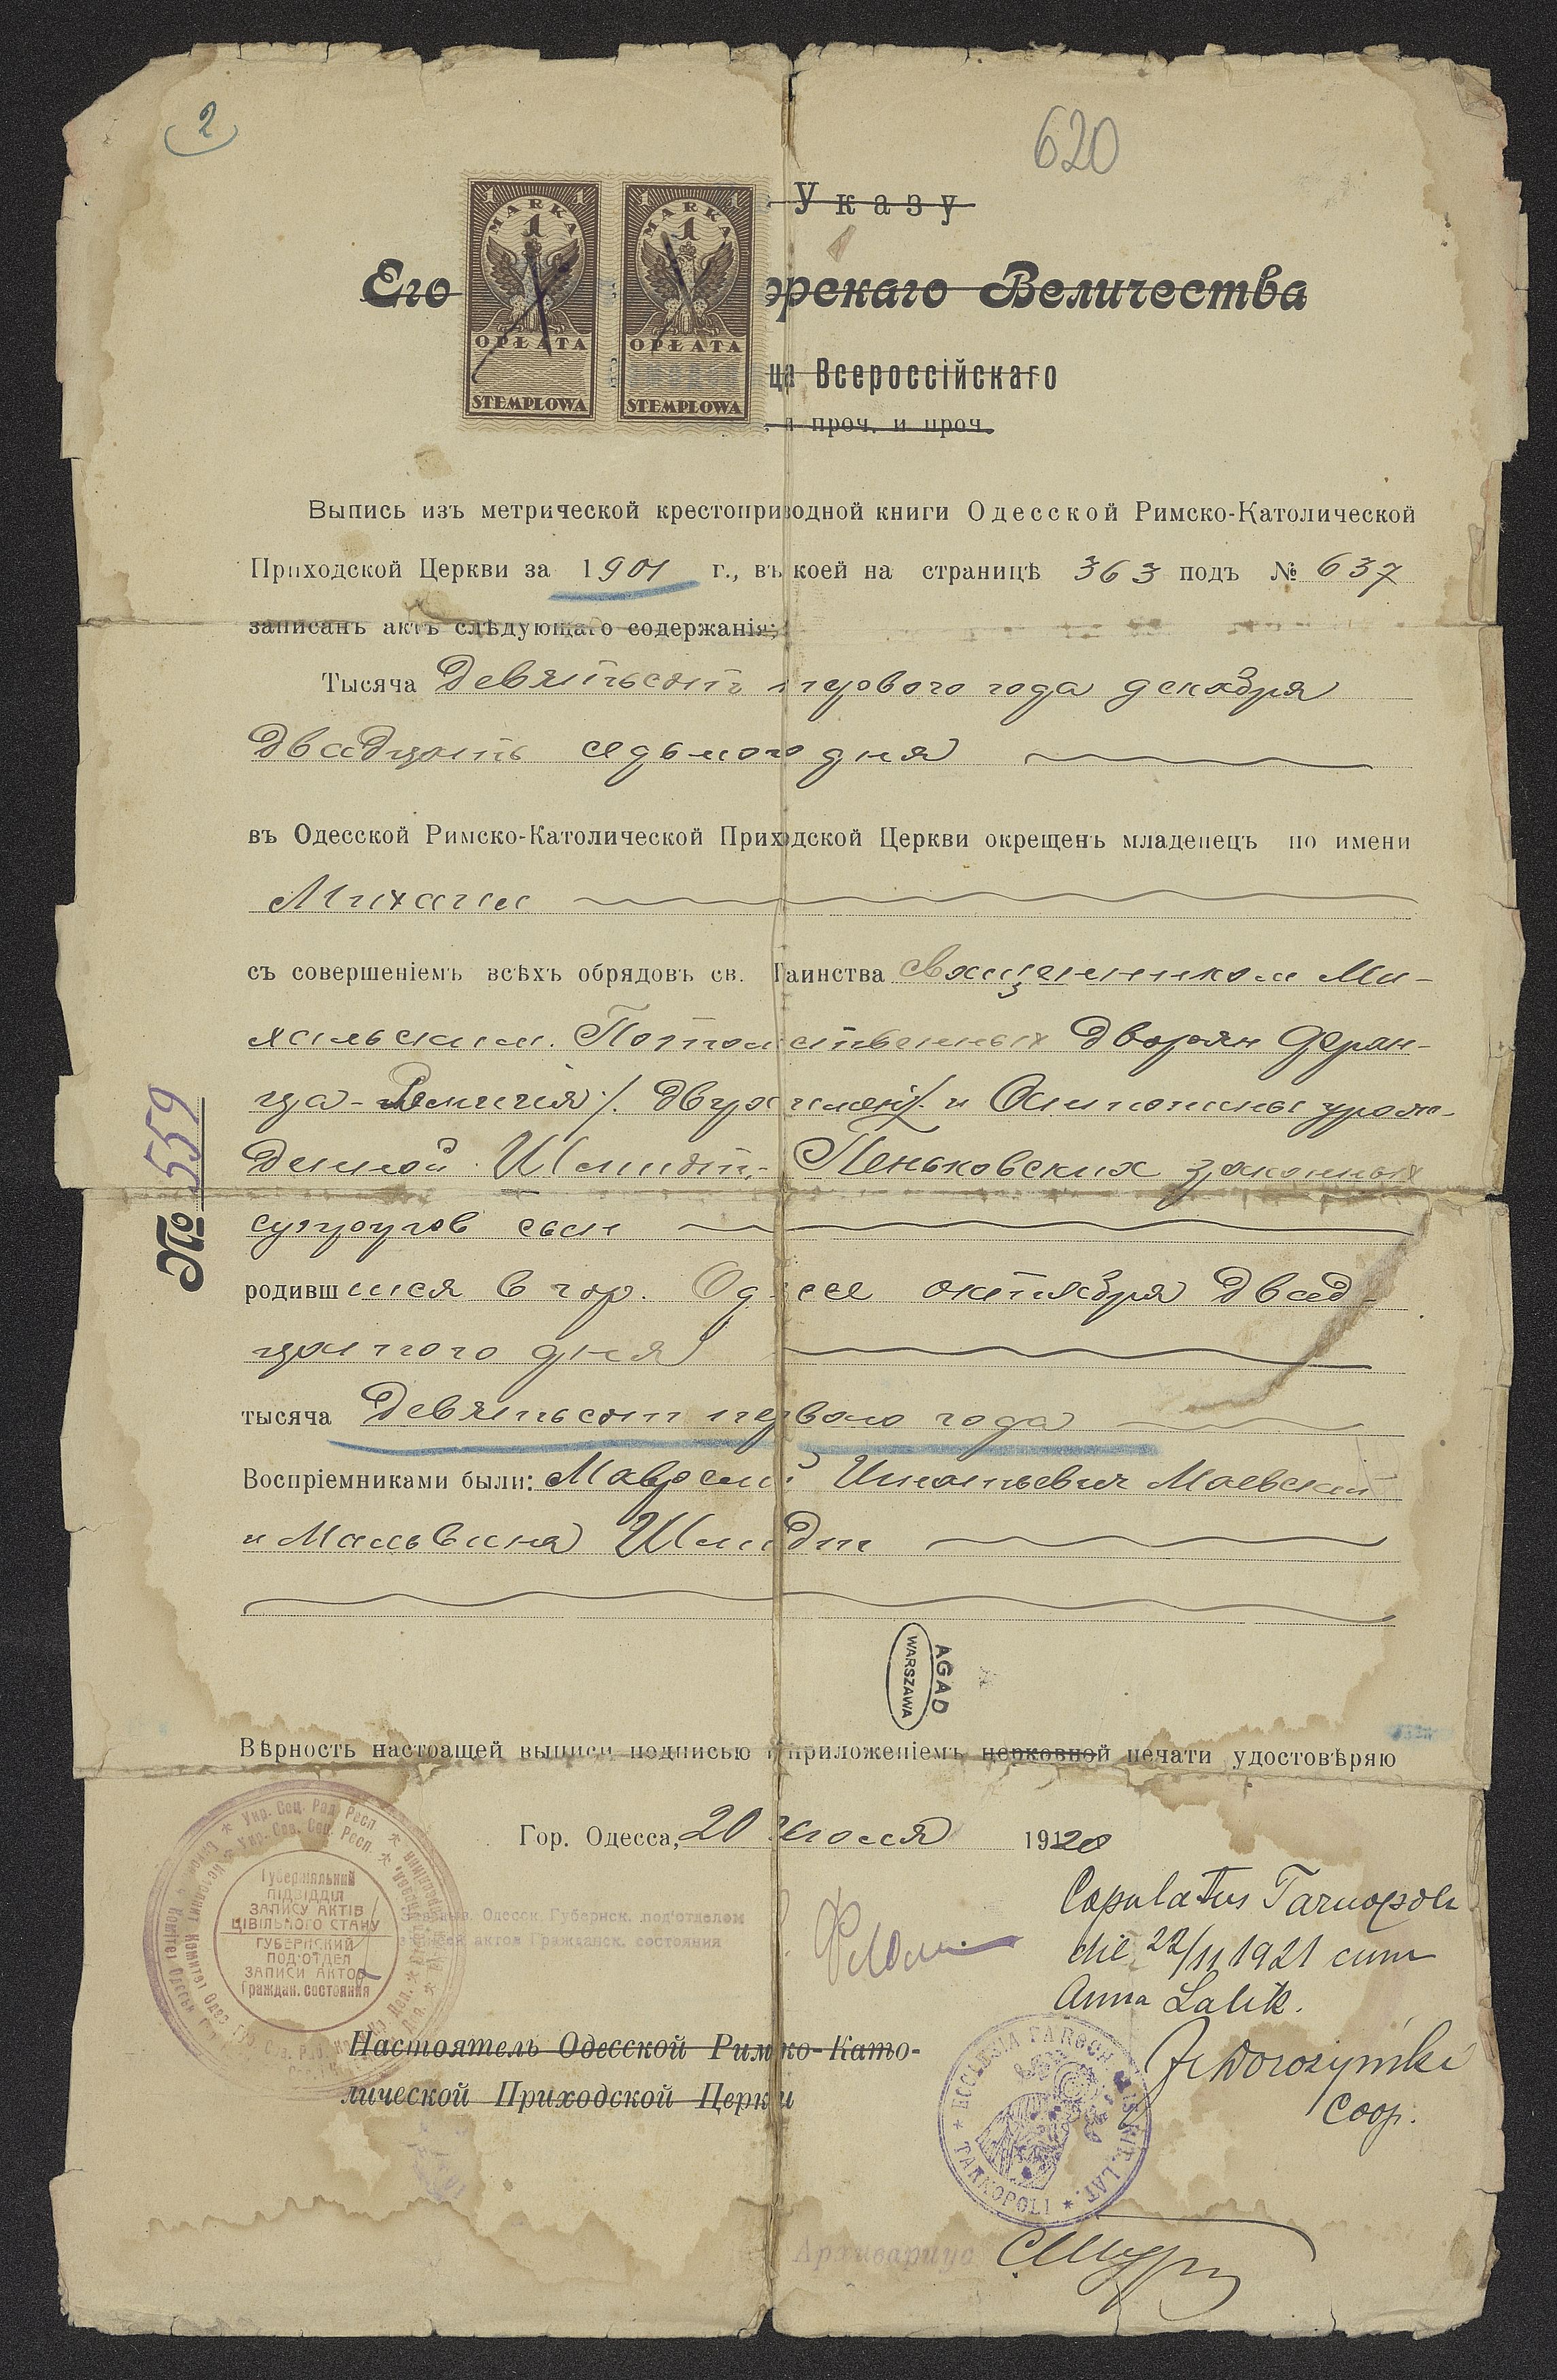 2
620
Указу
Его орскаго Величества
ца Всероссійскаго
и проч. и проч.
1 MARKA 1
1
OPŁATA
STEMPLOWA
1 MARKA 1
1
OPŁATA
STEMPLOWA
Выпись изъ метрической крестоприводной книги Одесской Римско-Католической
Приходской Церкви за 1901 г., въ коей на страницѣ 363 подъ № 637
записанъ актъ слѣдующаго содержанія:
Тысяча девятьсотъ первого года декабря
двадцать седьмого дня
въ Одесской Римско-Католической Приходской Церкви окрещенъ младенецъ по имени
Михаил
съ совершеніемъ всѣхъ обрядовъ св. Таинства священником Ми-
хальским. Потомственных дворян Фран-
ца-Ремигия /. двух имен /. и Антонины урож-
денной Шмидт, Пеньковских законных
супругов сын
родившийся в гор. Одессе октября двад-
цатого дня
тысяча девятьсот первого года
Воспріемниками были: Маврекий Игнатьевич Маевский
и Мальвина Шмидт
№ 559
AGAD
WARSZAWA
Вѣрность настоящей выписи подписью и приложеніемъ церковной печати удостовѣряю
Гор. Одесса, 20 июля 1920
Одесск. Губернск. под'отделом
записей актов Гражданск. состояния
Губерніяльний
ПІДВІДДІЛ
ЗАПИСУ АКТІВ
ЦІВІЛЬНОГО СТАНУ
ГУБЕРНСКИЙ
ПОД'ОТДЕЛ
ЗАПИСИ АКТОВ
Граждан. состояния
Copulatus Tarnopoli
die 22/11 1921 cum
Anna Lalik.
Настоятель Одесской Римско-Като-
лической Приходской Церкви
Coop.
ECCLESIA PAROCH. RIT. LAT. TARNOPOLI
Архивариус